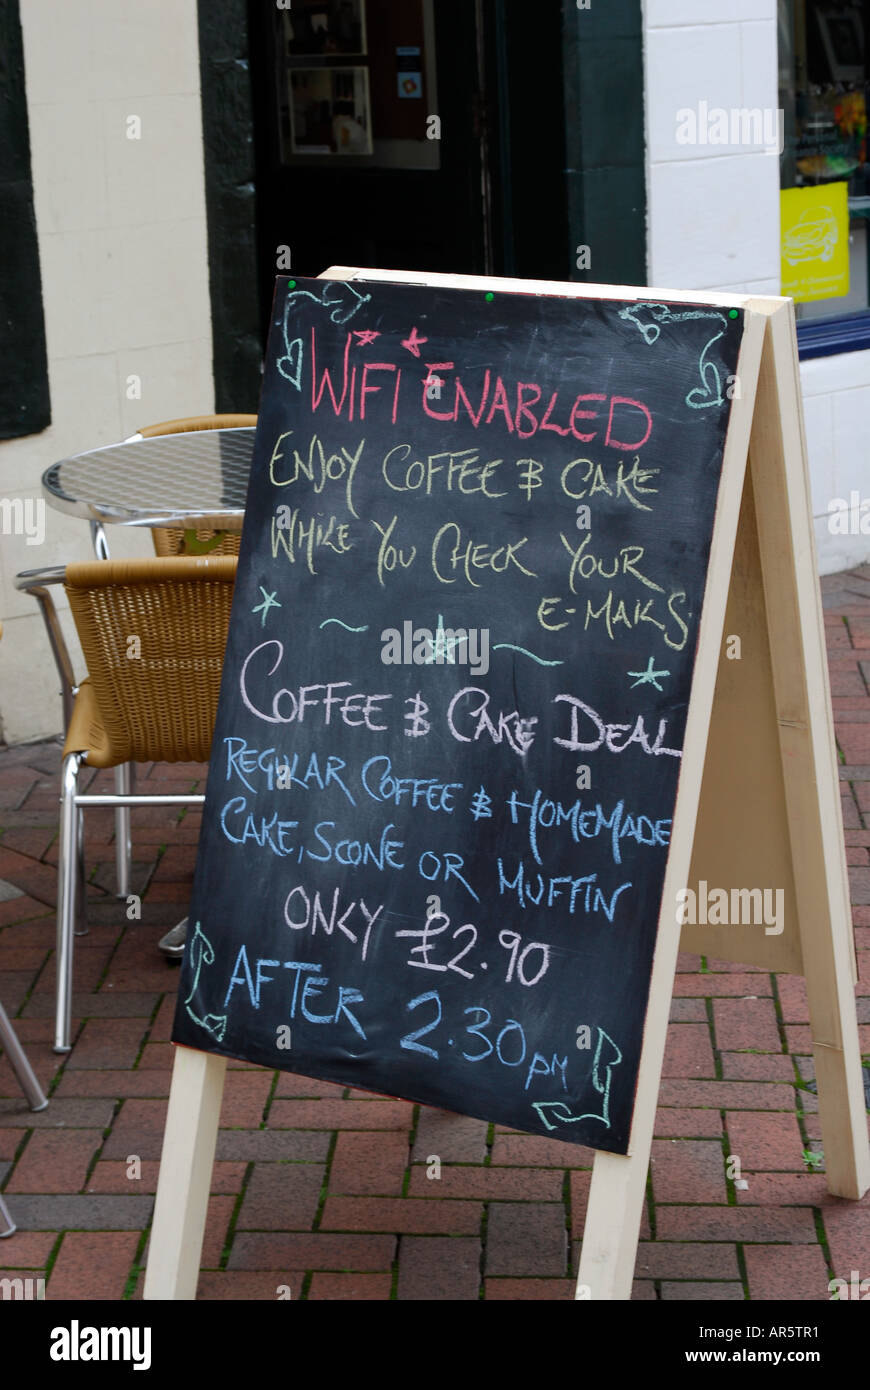 WIFI ENABLED
ENJOY COFFEE & CAKE
WHILE YOU CHECK YOUR
E-MAILS
COFFEE & CAKE DEAL
REGULAR COFFEE & HOMEMADE
CAKE, SCONE OR MUFFIN
ONLY £2.90
AFTER 2.30pm
alamy
Image ID: AR5TR1
www.alamy.com